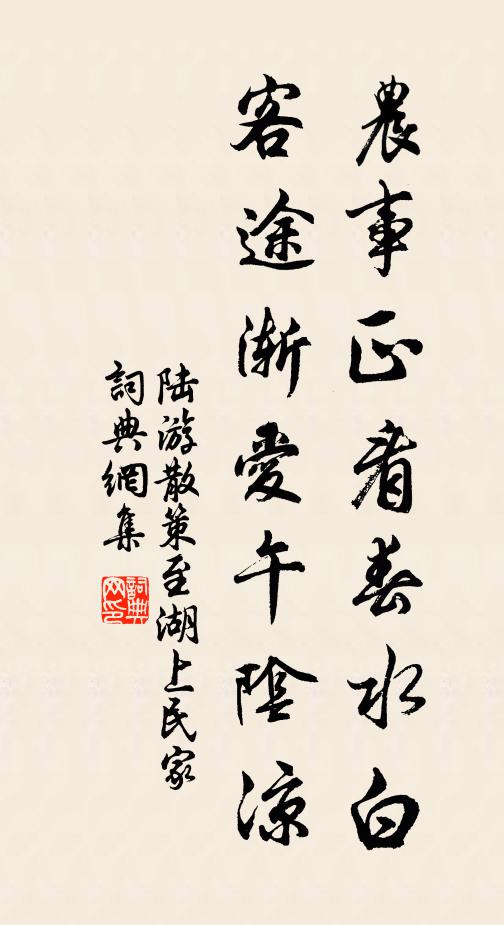 農事正看春水白
客途漸愛午陰涼
陸游散策至湖上民家
詞典網集
詞典網印